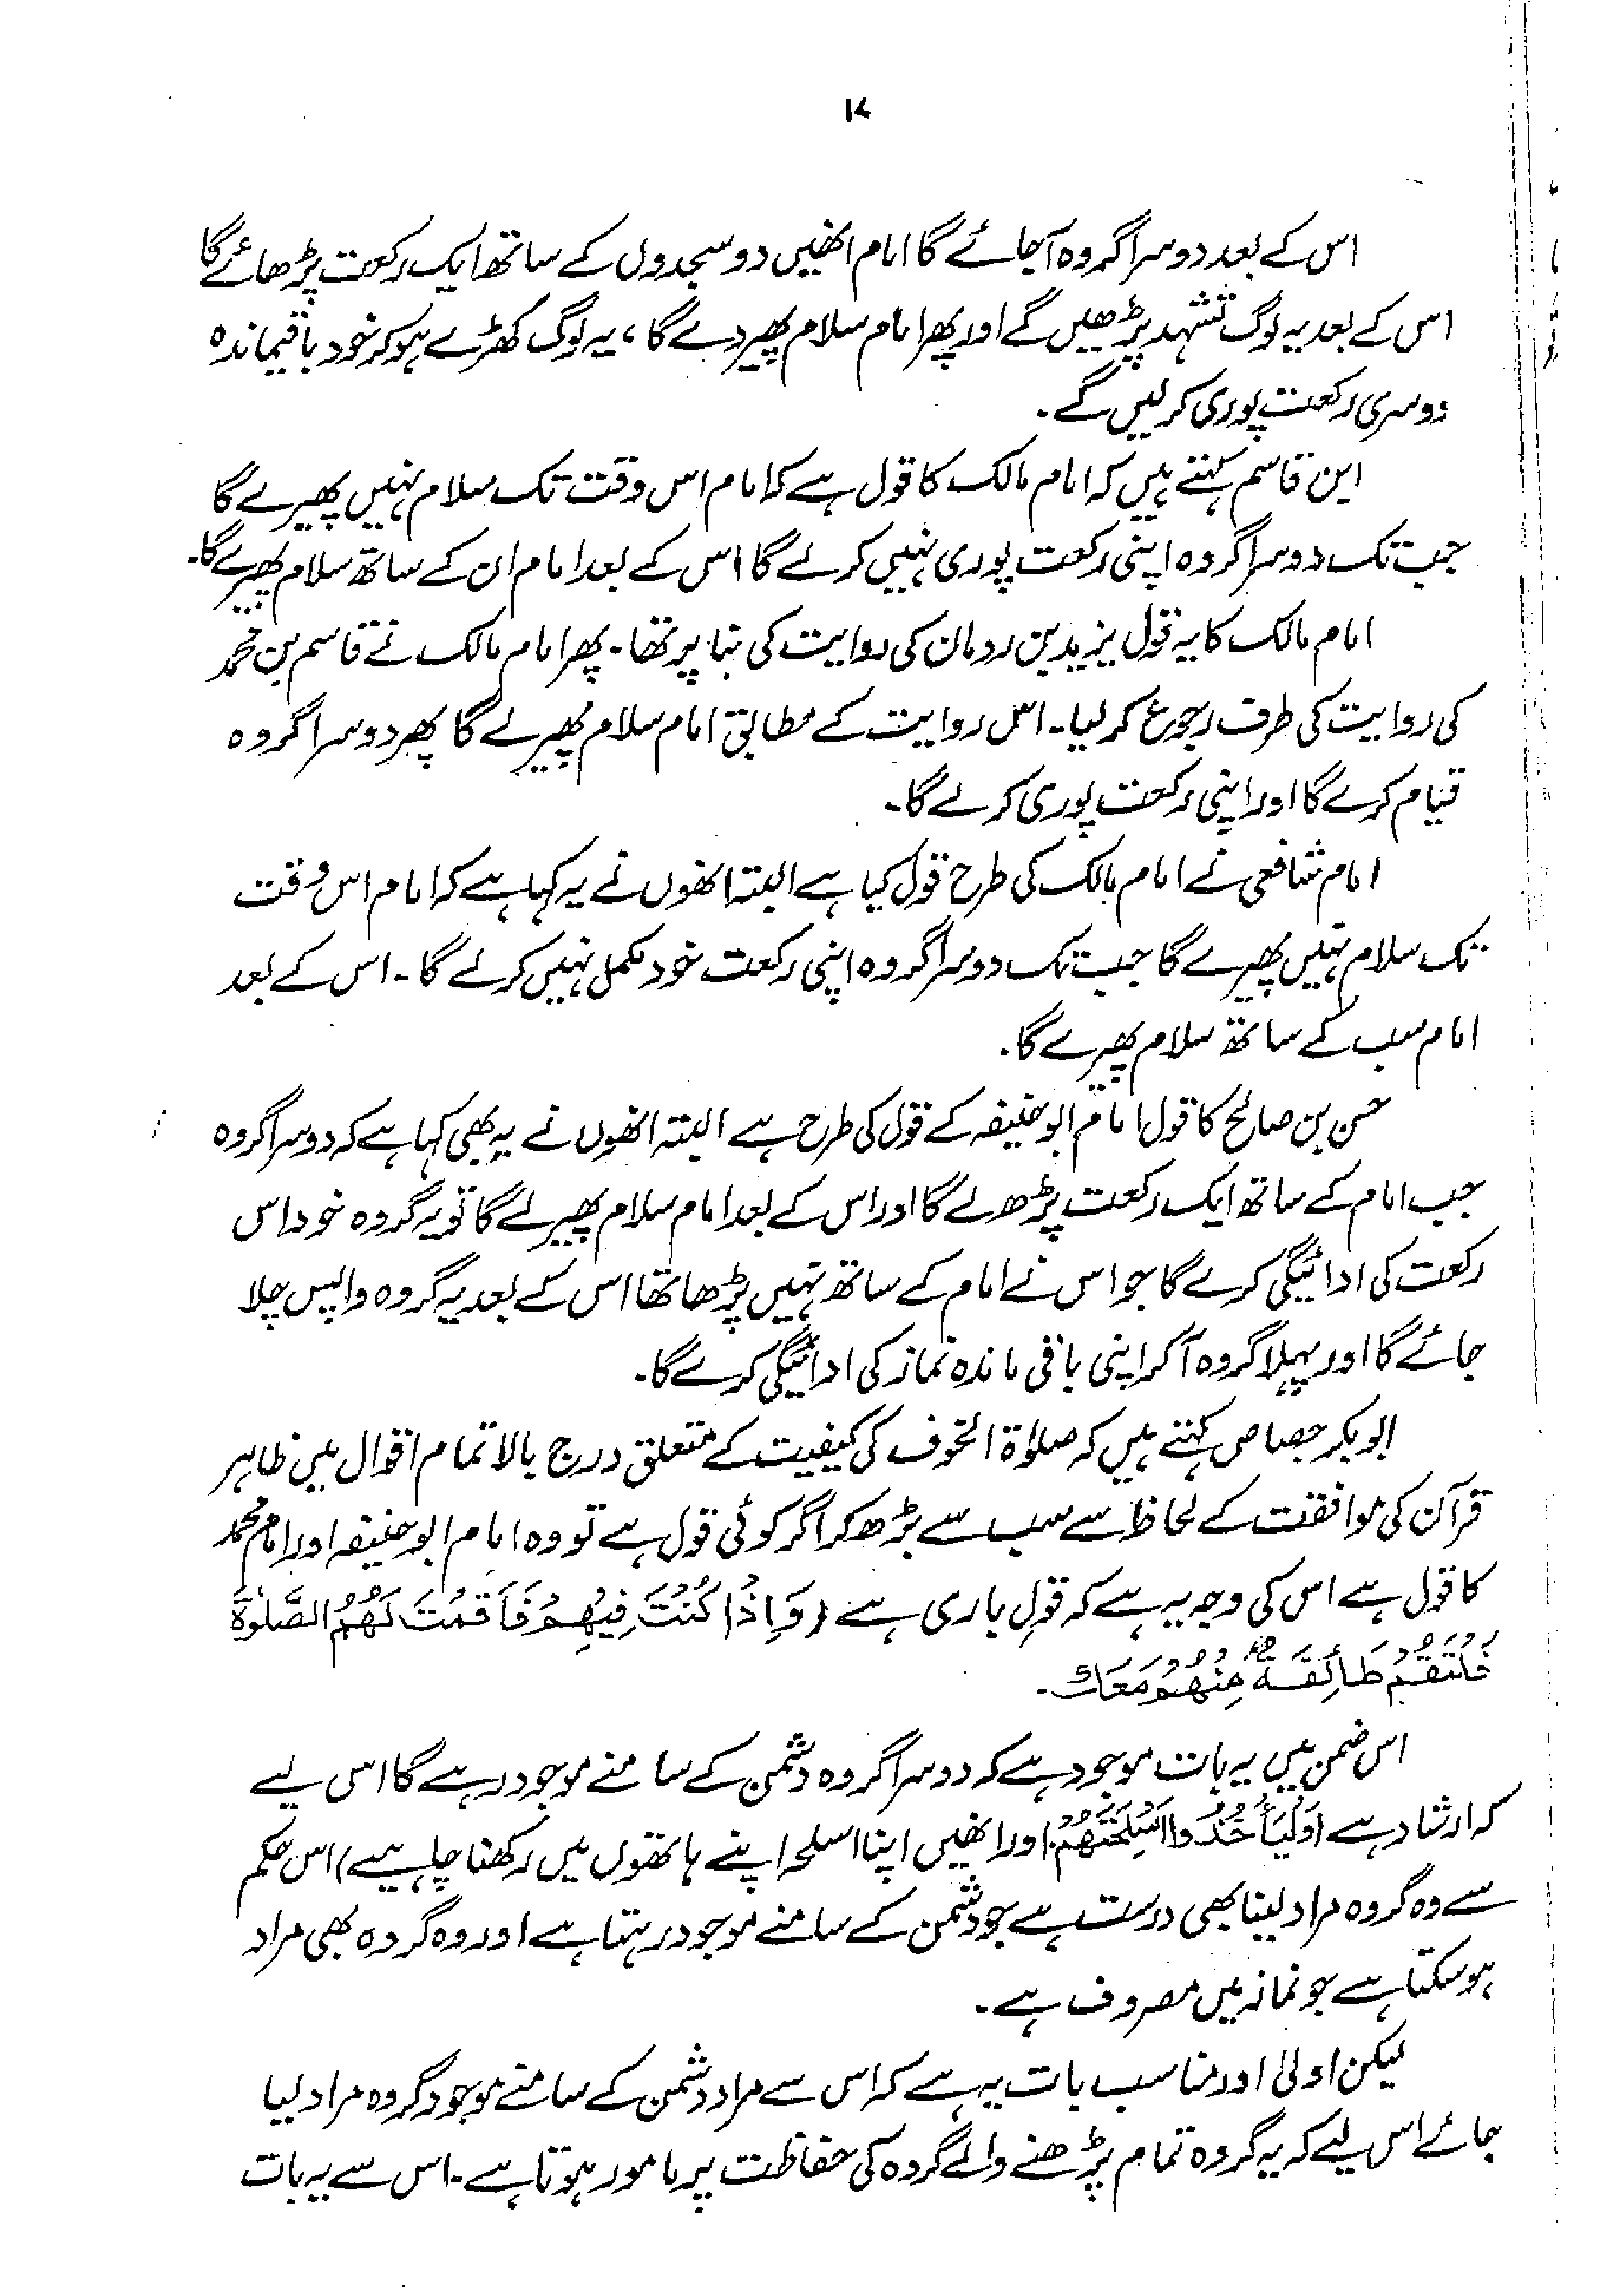 ۱۷
اس کے بعد دوسرا گروہ آجائے گا امام انھیں دو سجدوں کے ساتھ ایک رکعت پڑھائے گا
اس کے بعد یہ لوگ تشہد پڑھیں گے اور پھر امام سلام پھیر دے گا، یہ لوگ کھڑے ہو کر خود باقیماندہ
دوسری رکعت پوری کر لیں گے۔
ابن قاسم کہتے ہیں کہ امام مالک کا قول ہے کہ امام اس وقت تک سلام نہیں پھیرے گا
جب تک دوسرا گروہ اپنی رکعت پوری نہیں کر لے گا اس کے بعد امام ان کے ساتھ سلام پھیرے گا۔
امام مالک کا یہ قول یزید بن رومان کی روایت کی بنا پر تھا۔ پھر امام مالک نے قاسم بن محمد
کی روایت کی طرف رجوع کر لیا۔ اس روایت کے مطابق امام سلام پھیر لے گا پھر دوسرا گروہ
قیام کرے گا اور اپنی رکعت پوری کرے گا۔
امام شافعی نے امام مالک کی طرح قول کیا ہے البتہ انھوں نے یہ کہا ہے کہ امام اس وقت
تک سلام نہیں پھیرے گا جب تک دوسرا گروہ اپنی رکعت خود مکمل نہیں کر لے گا۔ اس کے بعد
امام سب کے ساتھ سلام پھیرے گا۔
حسن بن صالح کا قول امام ابو حنیفہ کے قول کی طرح ہے البتہ انھوں نے یہ بھی کہا ہے کہ دوسرا گروہ
جب امام کے ساتھ ایک رکعت پڑھ لے گا اور اس کے بعد امام سلام پھیر لے گا تو یہ گروہ خود اس
رکعت کی ادائیگی کرے گا جو اس نے امام کے ساتھ نہیں پڑھا تھا اس کے بعد یہ گروہ واپس چلا
جائے گا اور پہلا گروہ آکر اپنی باقی ماندہ نماز کی ادائیگی کرے گا۔
ابو بکر جصاص کہتے ہیں کہ صلوٰۃ الخوف کی کیفیت کے متعلق درج بالا تمام اقوال میں ظاہر
قرآن کی موافقت کے لحاظ سے سب سے بڑھ کر اگر کوئی قول ہے تو وہ امام ابو حنیفہ اور امام محمد
کا قول ہے اس کی وجہ یہ ہے کہ قول باری ہے (وَاِذَا كُنْتَ فِيْهِمْ فَاَقَمْتَ لَهُمُ الصَّلٰوةَ
فَلْتَقُمْ طَائِفَةٌ مِنْهُمْ مَعَكَ۔
اس ضمن میں یہ بات موجود ہے کہ دوسرا گروہ دشمن کے سامنے موجود رہے گا اس لیے
کہ ارشاد ہے (وَلْيَأْخُذُوا اَسْلِحَتَهُمْ، اور انھیں اپنا اسلحہ اپنے ہاتھوں میں رکھنا چاہیے) اس حکم
سے وہ گروہ مراد لینا بھی درست ہے جو دشمن کے سامنے موجود رہتا ہے اور وہ گروہ بھی مراد
ہو سکتا ہے جو نماز میں مصروف ہے۔
لیکن اولیٰ اور مناسب بات یہ ہے کہ اس سے مراد دشمن کے سامنے موجود گروہ مراد لیا
جائے اس لیے کہ یہ گروہ تمام پڑھنے والے گروہ کی حفاظت پر مامور ہوتا ہے۔ اس سے یہ بات